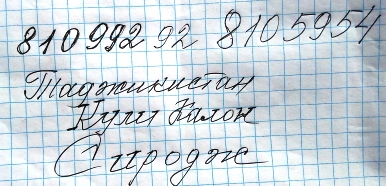 810992 92 8105954
Таджикистан
Кули Калон
Сиродж